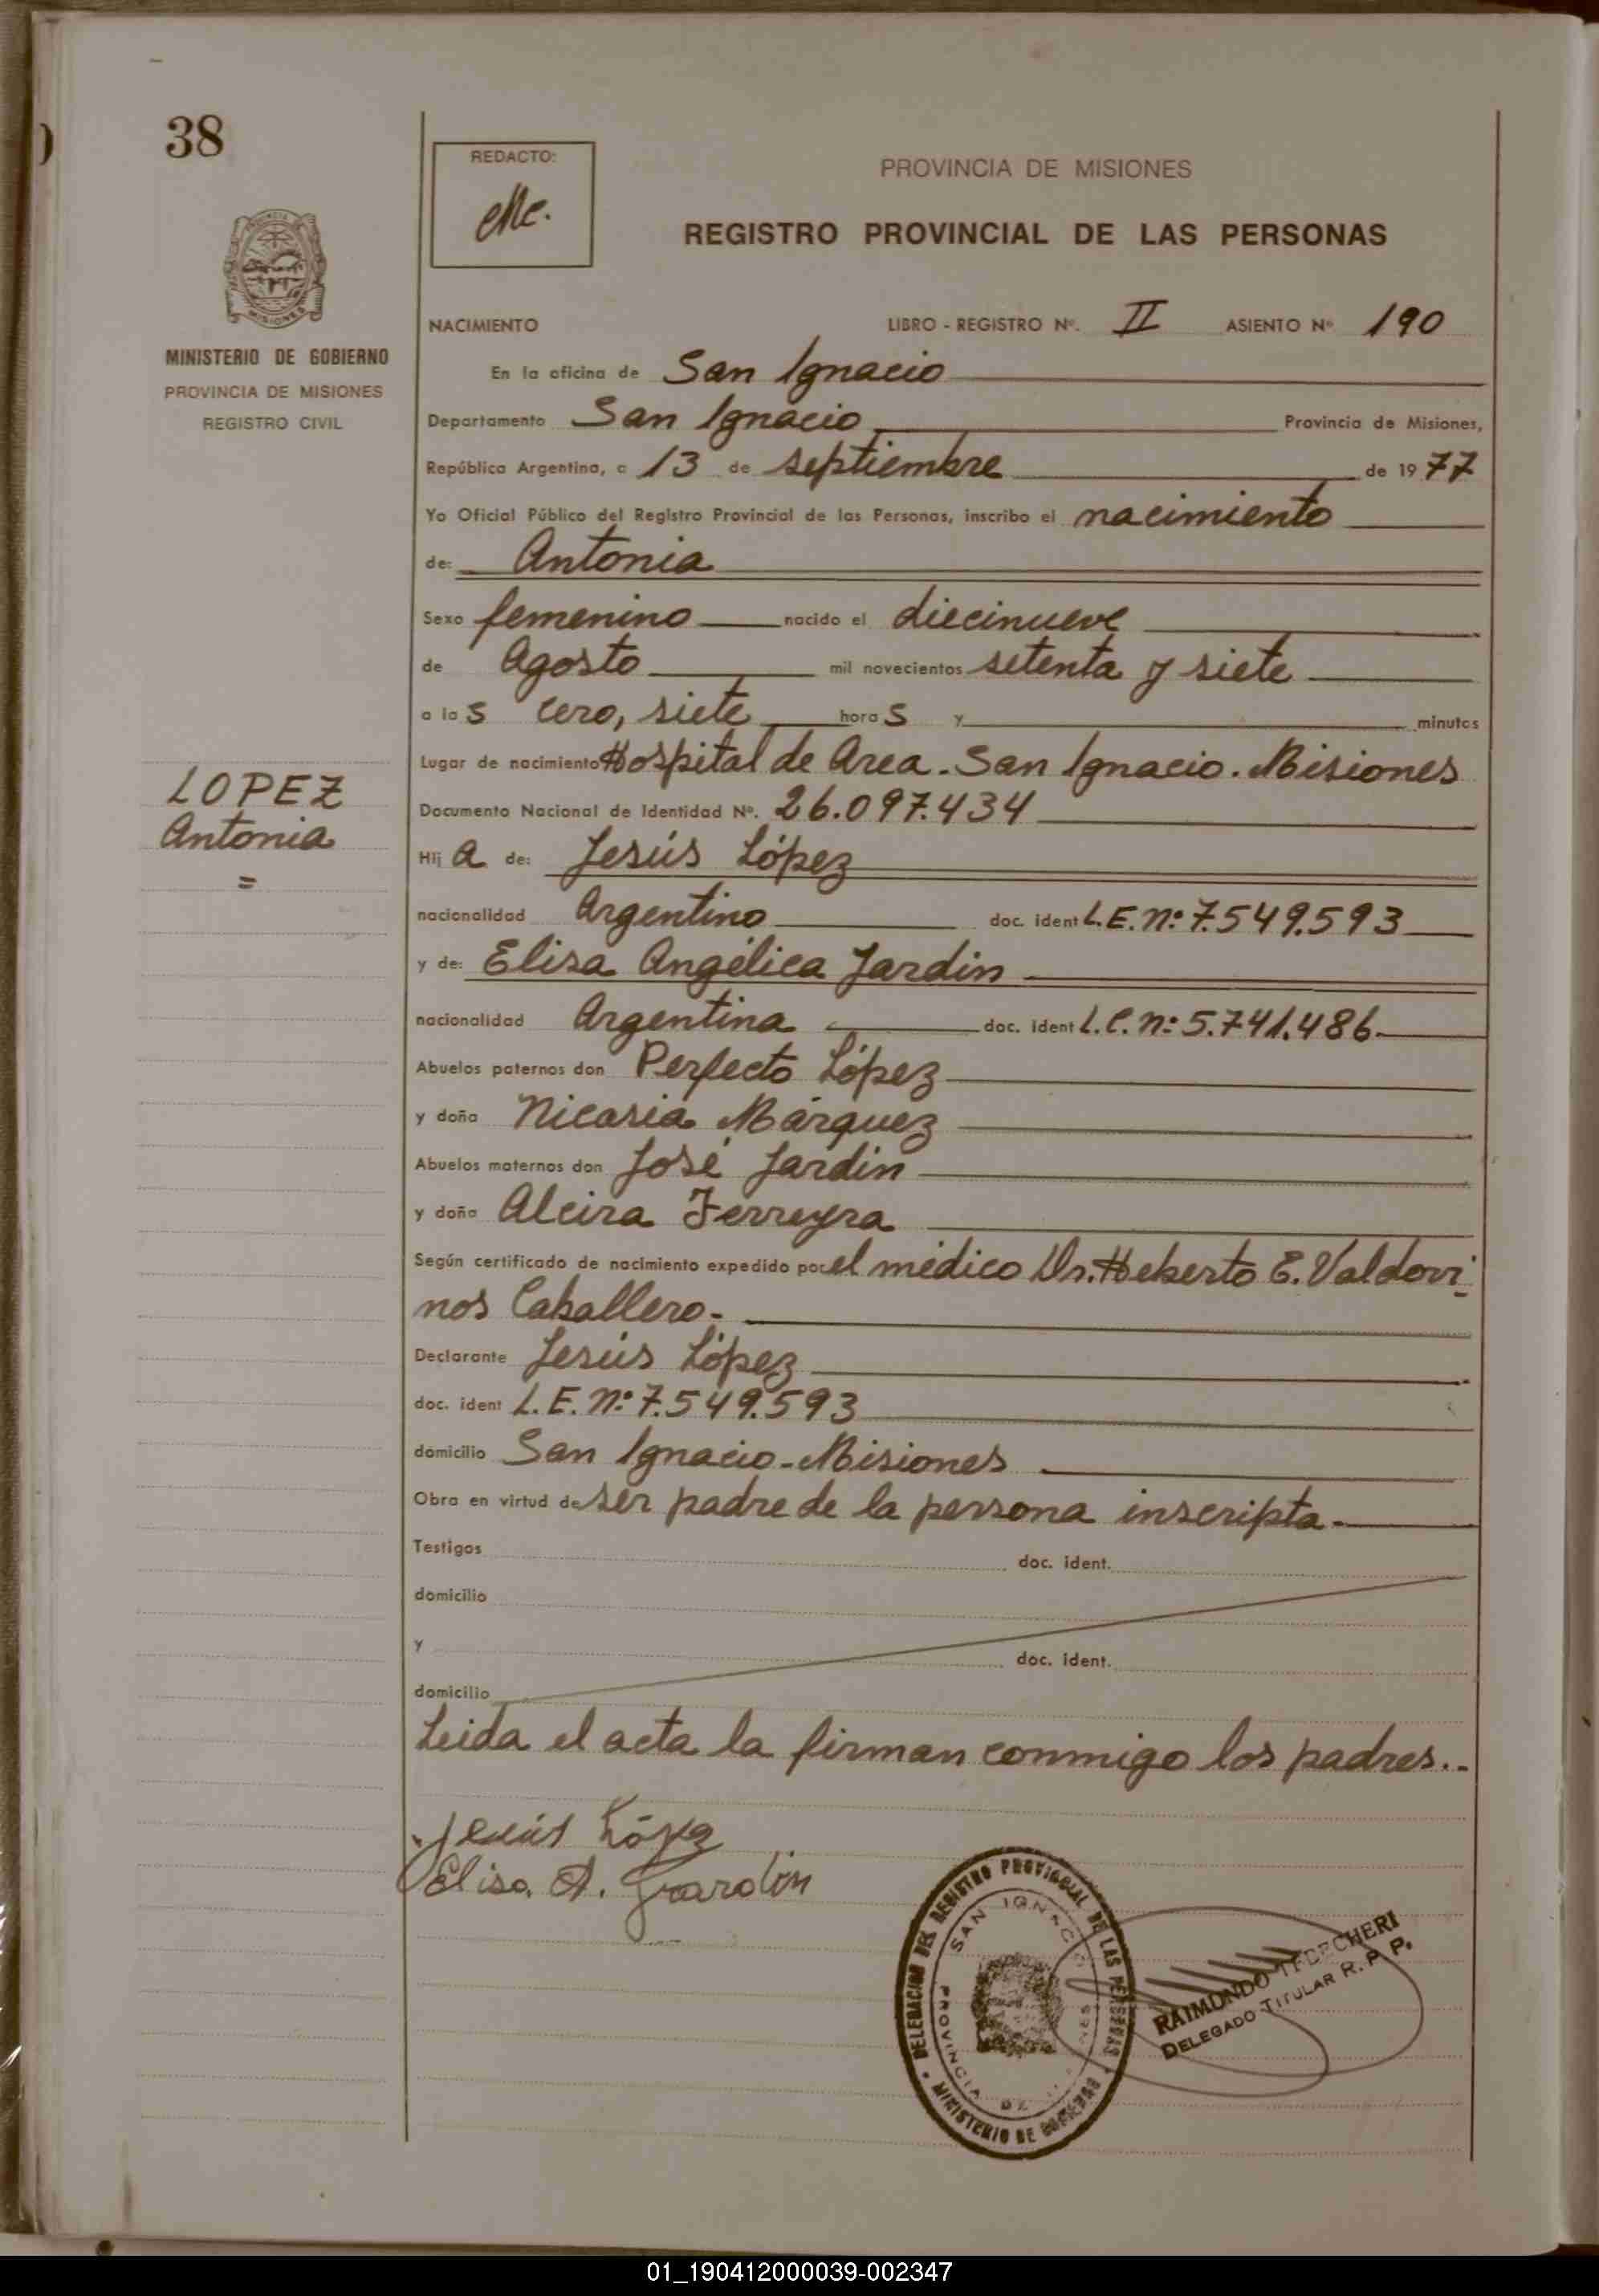 38
REDACTO:
PROVINCIA DE MISIONES
REGISTRO PROVINCIAL DE LAS PERSONAS
MISIONES
MINISTERIO DE GOBIERNO
PROVINCIA DE MISIONES
REGISTRO CIVIL
NACIMIENTO LIBRO - REGISTRO Nº. II ASIENTO Nº 190
En la oficina de San Ignacio
Departamento San Ignacio Provincia de Misiones,
República Argentina, a 13 de septiembre de 1977
Yo Oficial Público del Registro Provincial de las Personas, inscribo el nacimiento
de: Antonia
Sexo femenino nacido el diecinueve
de Agosto mil novecientos setenta y siete
a las cero, siete horas y minutos
Lugar de nacimiento Hospital de Area. San Ignacio. Misiones
Documento Nacional de Identidad Nº. 26.097.434
LOPEZ
Antonia
=
Hija de: Jesús López
nacionalidad Argentino doc. ident L.E. nº 7.549.593
y de: Elisa Angélica Jardin
nacionalidad Argentina doc. ident L.C. nº 5.741.486
Abuelos paternos don Perfecto López
y doña Nicasia Márquez
Abuelos maternos don José Jardin
y doña Alcira Ferreyra
Según certificado de nacimiento expedido por el médico Dr. Heberto E. Valdovi-
nos Caballero.
Declarante Jesús López
doc. ident L.E. nº 7.549.593
domicilio San Ignacio - Misiones
Obra en virtud de ser padre de la persona inscripta.
Testigos doc. ident.
domicilio
y doc. ident.
domicilio
Leida el acta la firman conmigo los padres..
Jesús López
Elisa A. Jardin
DELEGACION DEL REGISTRO PROVINCIAL DE LAS PERSONAS
SAN IGNACIO
PROVINCIA DE
MINISTERIO DE GOBIERNO
RAIMUNDO
DELEGADO TITULAR R. P. P.
01_190412000039-002347